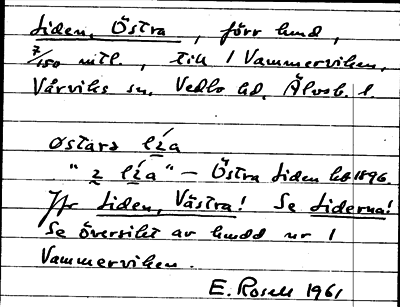 Liden, Östra, förr hmd,
7/150 mtl., till 1 Vammerviken,
Vårviks sn. Vedbo hd. Älvsb. l.
østarə lía
" ə lía" – Östra Liden hb 1896.
Jfr Liden, Västra! Se Liderna!
Se översikt av hmdd nr 1
Vammerviken.
E. Rosell 1961